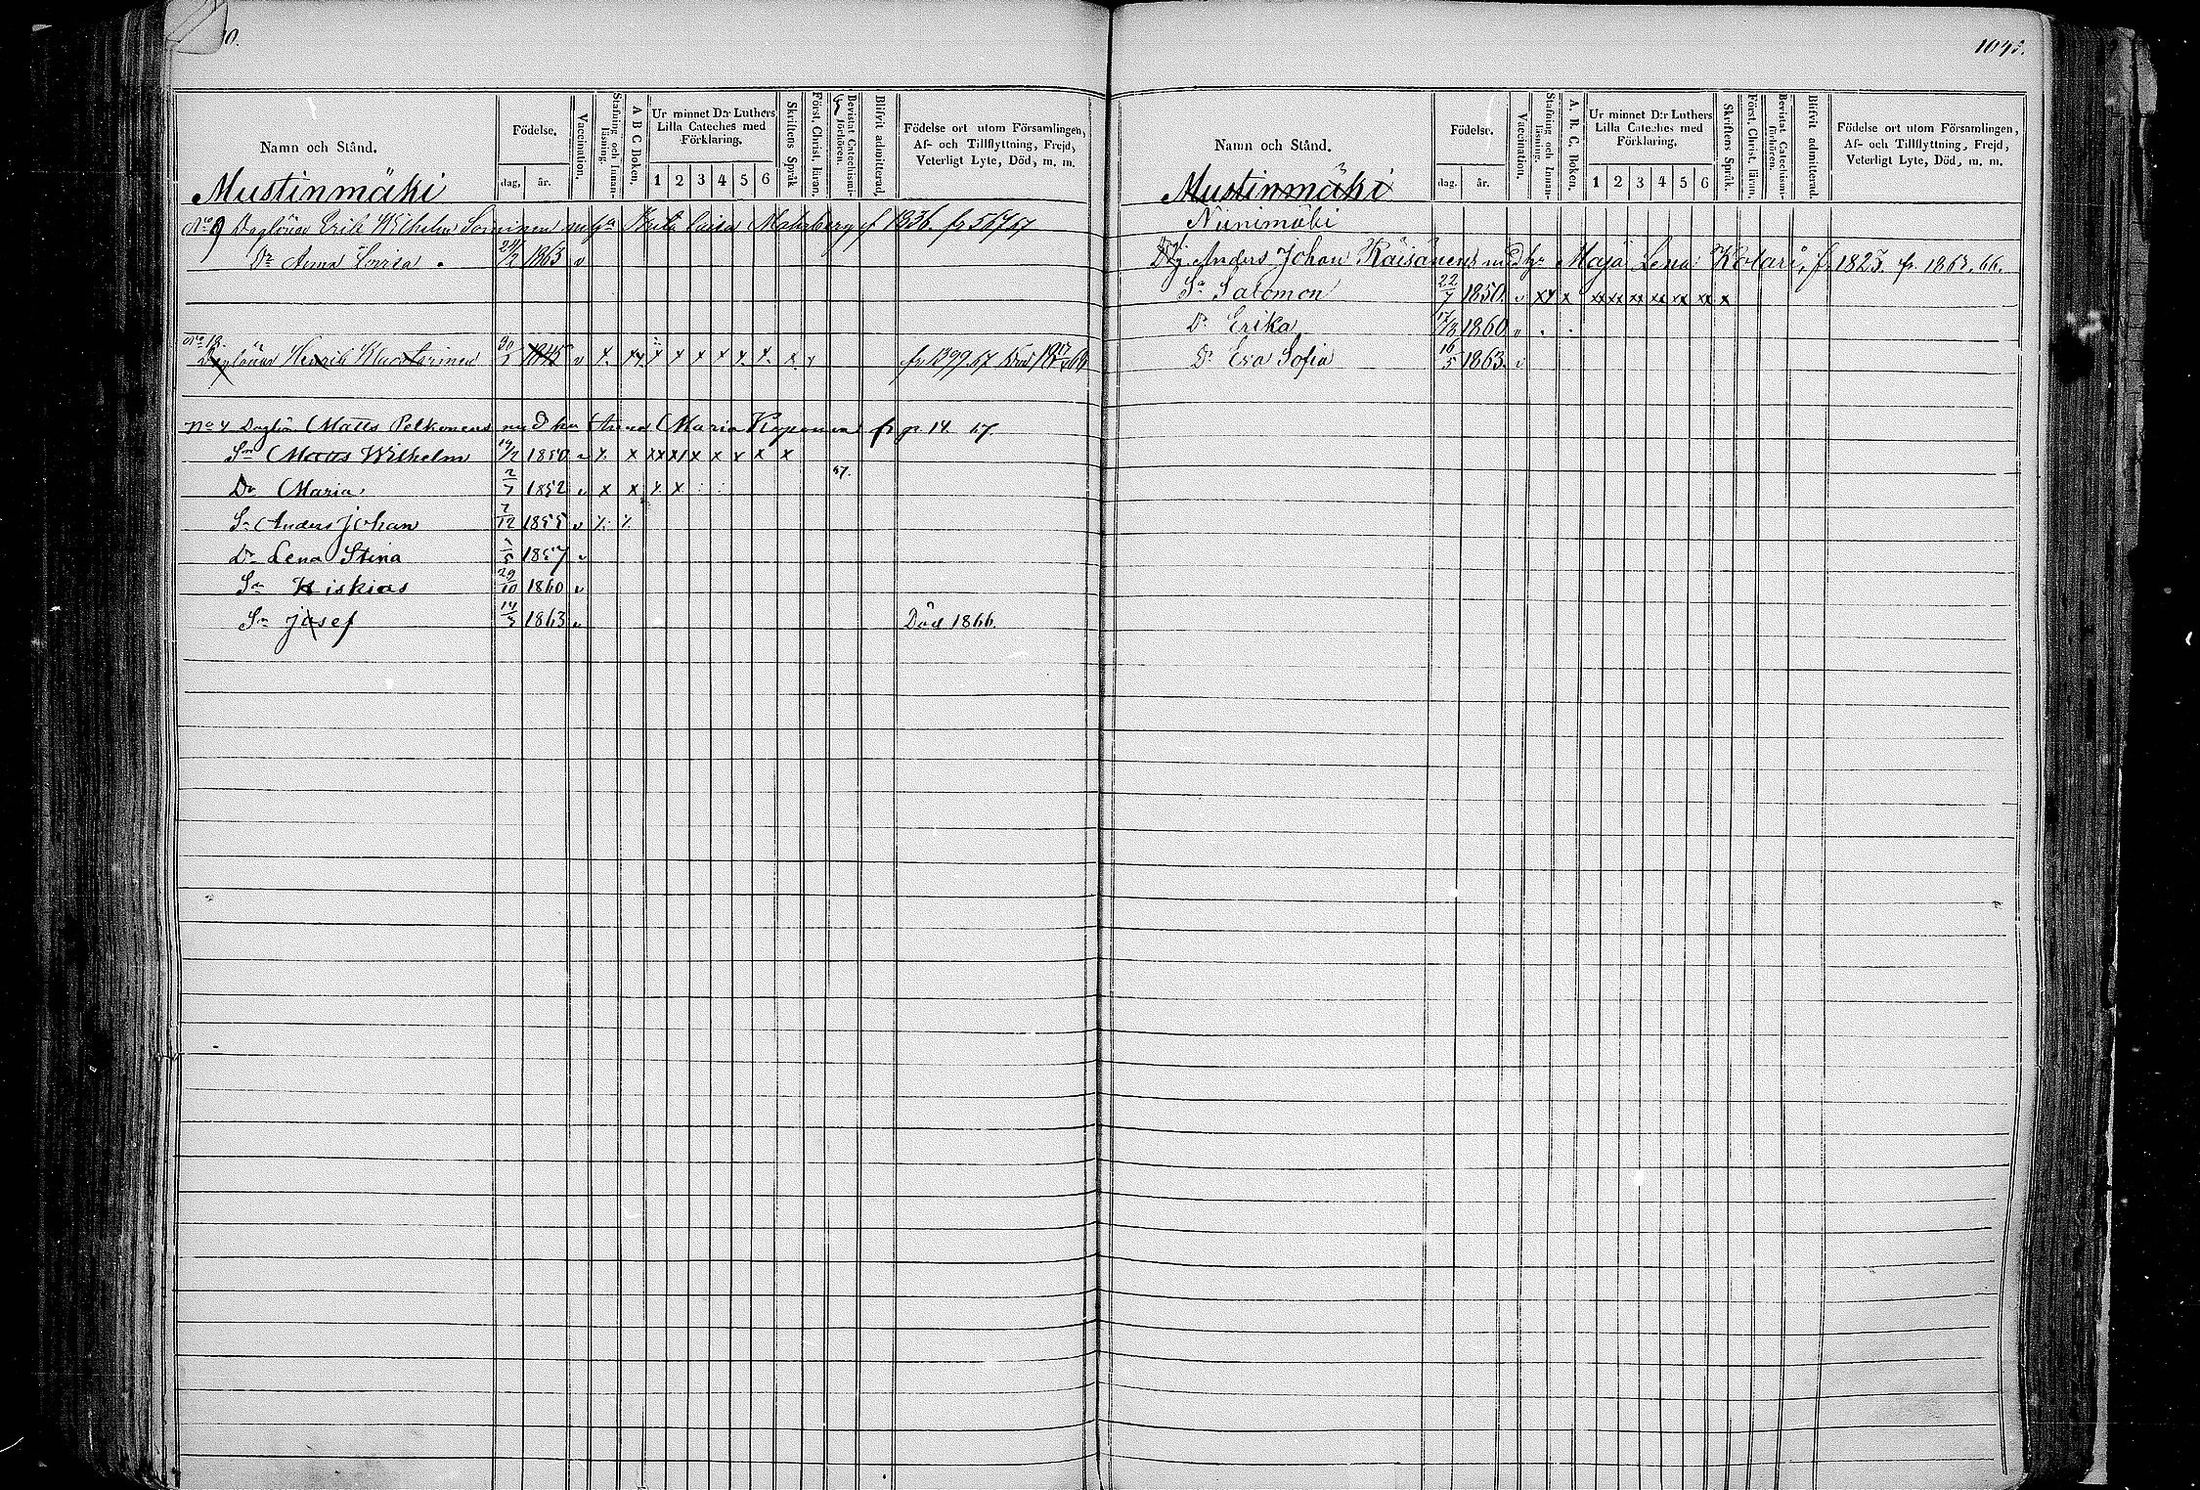 1045.
Namn och Stånd.
Födelse.
dag. år.
Vaccination.
Stafning och Innanläsning.
A B C Boken.
Ur minnet D:r Luthers Lilla Cateches med Förklaring.
1 2 3 4 5 6
Skriftens Språk
Först. Christ. läran.
Bevistat Catechismi-förhören.
Blifvit admitterad.
Födelse ort utom Församlingen, Af- och Tillflyttning, Frejd, Veterligt Lyte, Död, m. m.
Mustinmäki
No 9 Daglönar Erik Wilhelm Brita Caisa f 1836. fr 567 67
Dr Anna Lovisa 24/2 1863 v
No 18.
Daglönar Henrik 1845 v x x x x x x x fr 1399.67 Död
No 4 Daglön. Matts Pelkonens med hu Anna Maria fr p. 14 67.
Sn Matts Wilhelm 19/2 1850 v x x xx x x x x x x
67.
Dr Maria 2/7 1852 v x x x x
Sn Anders Johan 7/12 1855 v
Dr Lena Stina 1857 v
Sn Hiskias 29/10 1860 v
Sn Josef 14/3 1863 v Död 1866.
Namn och Stånd.
Födelse.
dag. år.
Vaccination.
Stafning och Innanläsning.
A. B. C. Boken.
Ur minnet D:r Luthers Lilla Cateches med Förklaring.
1 2 3 4 5 6
Skriftens Språk.
Först. Christ. läran.
Bevistat Catechismi-förhören.
Blifvit admitterad
Födelse ort utom Församlingen, Af- och Tillflyttning, Frejd, Veterligt Lyte, Död, m. m.
Mustinmäki
Niinimäki
Anders Johan Räisänens med h. Maja Lena Kolari, f. 1825. fr. 1863. 66.
Sn Salomon 22/7 1850. v xx x xx xx xx xx xx xx x
Dr Erika 17/8 1860 v
Dr Eva Sofia 16/5 1863. v